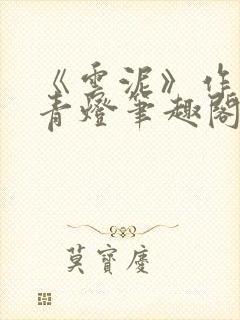 《雲泥》作
青燈筆趣閣
莫寶慶